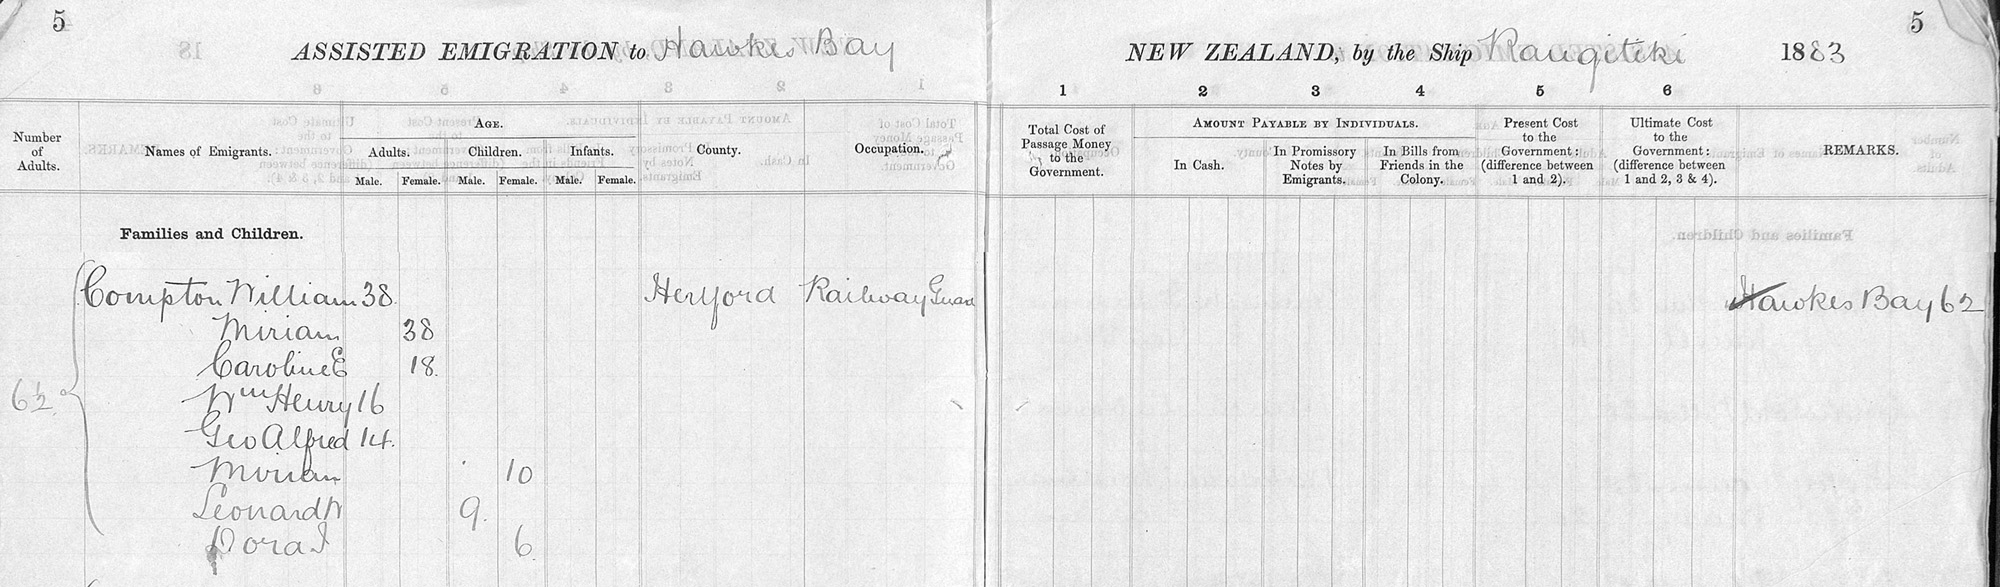 5
ASSISTED EMIGRATION to Hawkes Bay
NEW ZEALAND, by the Ship Rangitiki 1883
5
Number of Adults.
Names of Emigrants.
AGE.
Adults.
Children.
Infants.
Male.
Female.
Male.
Female.
Male.
Female.
County.
Occupation.
1
Total Cost of
Passage Money
to the
Government.
AMOUNT PAYABLE BY INDIVIDUALS.
2
In Cash.
3
In Promissory
Notes by
Emigrants.
4
In Bills from
Friends in the
Colony.
5
Present Cost
to the
Government:
(difference between
1 and 2).
6
Ultimate Cost
to the
Government:
(difference between
1 and 2, 3 & 4).
REMARKS.
Families and Children.
Compton William 38. Hertford Railway Guard Hawkes Bay 62
Miriam 38
Caroline E 18.
Wm Henry 16
6½ Geo Alfred 14.
Miriam 10
Leonard W 9.
Dora I 6